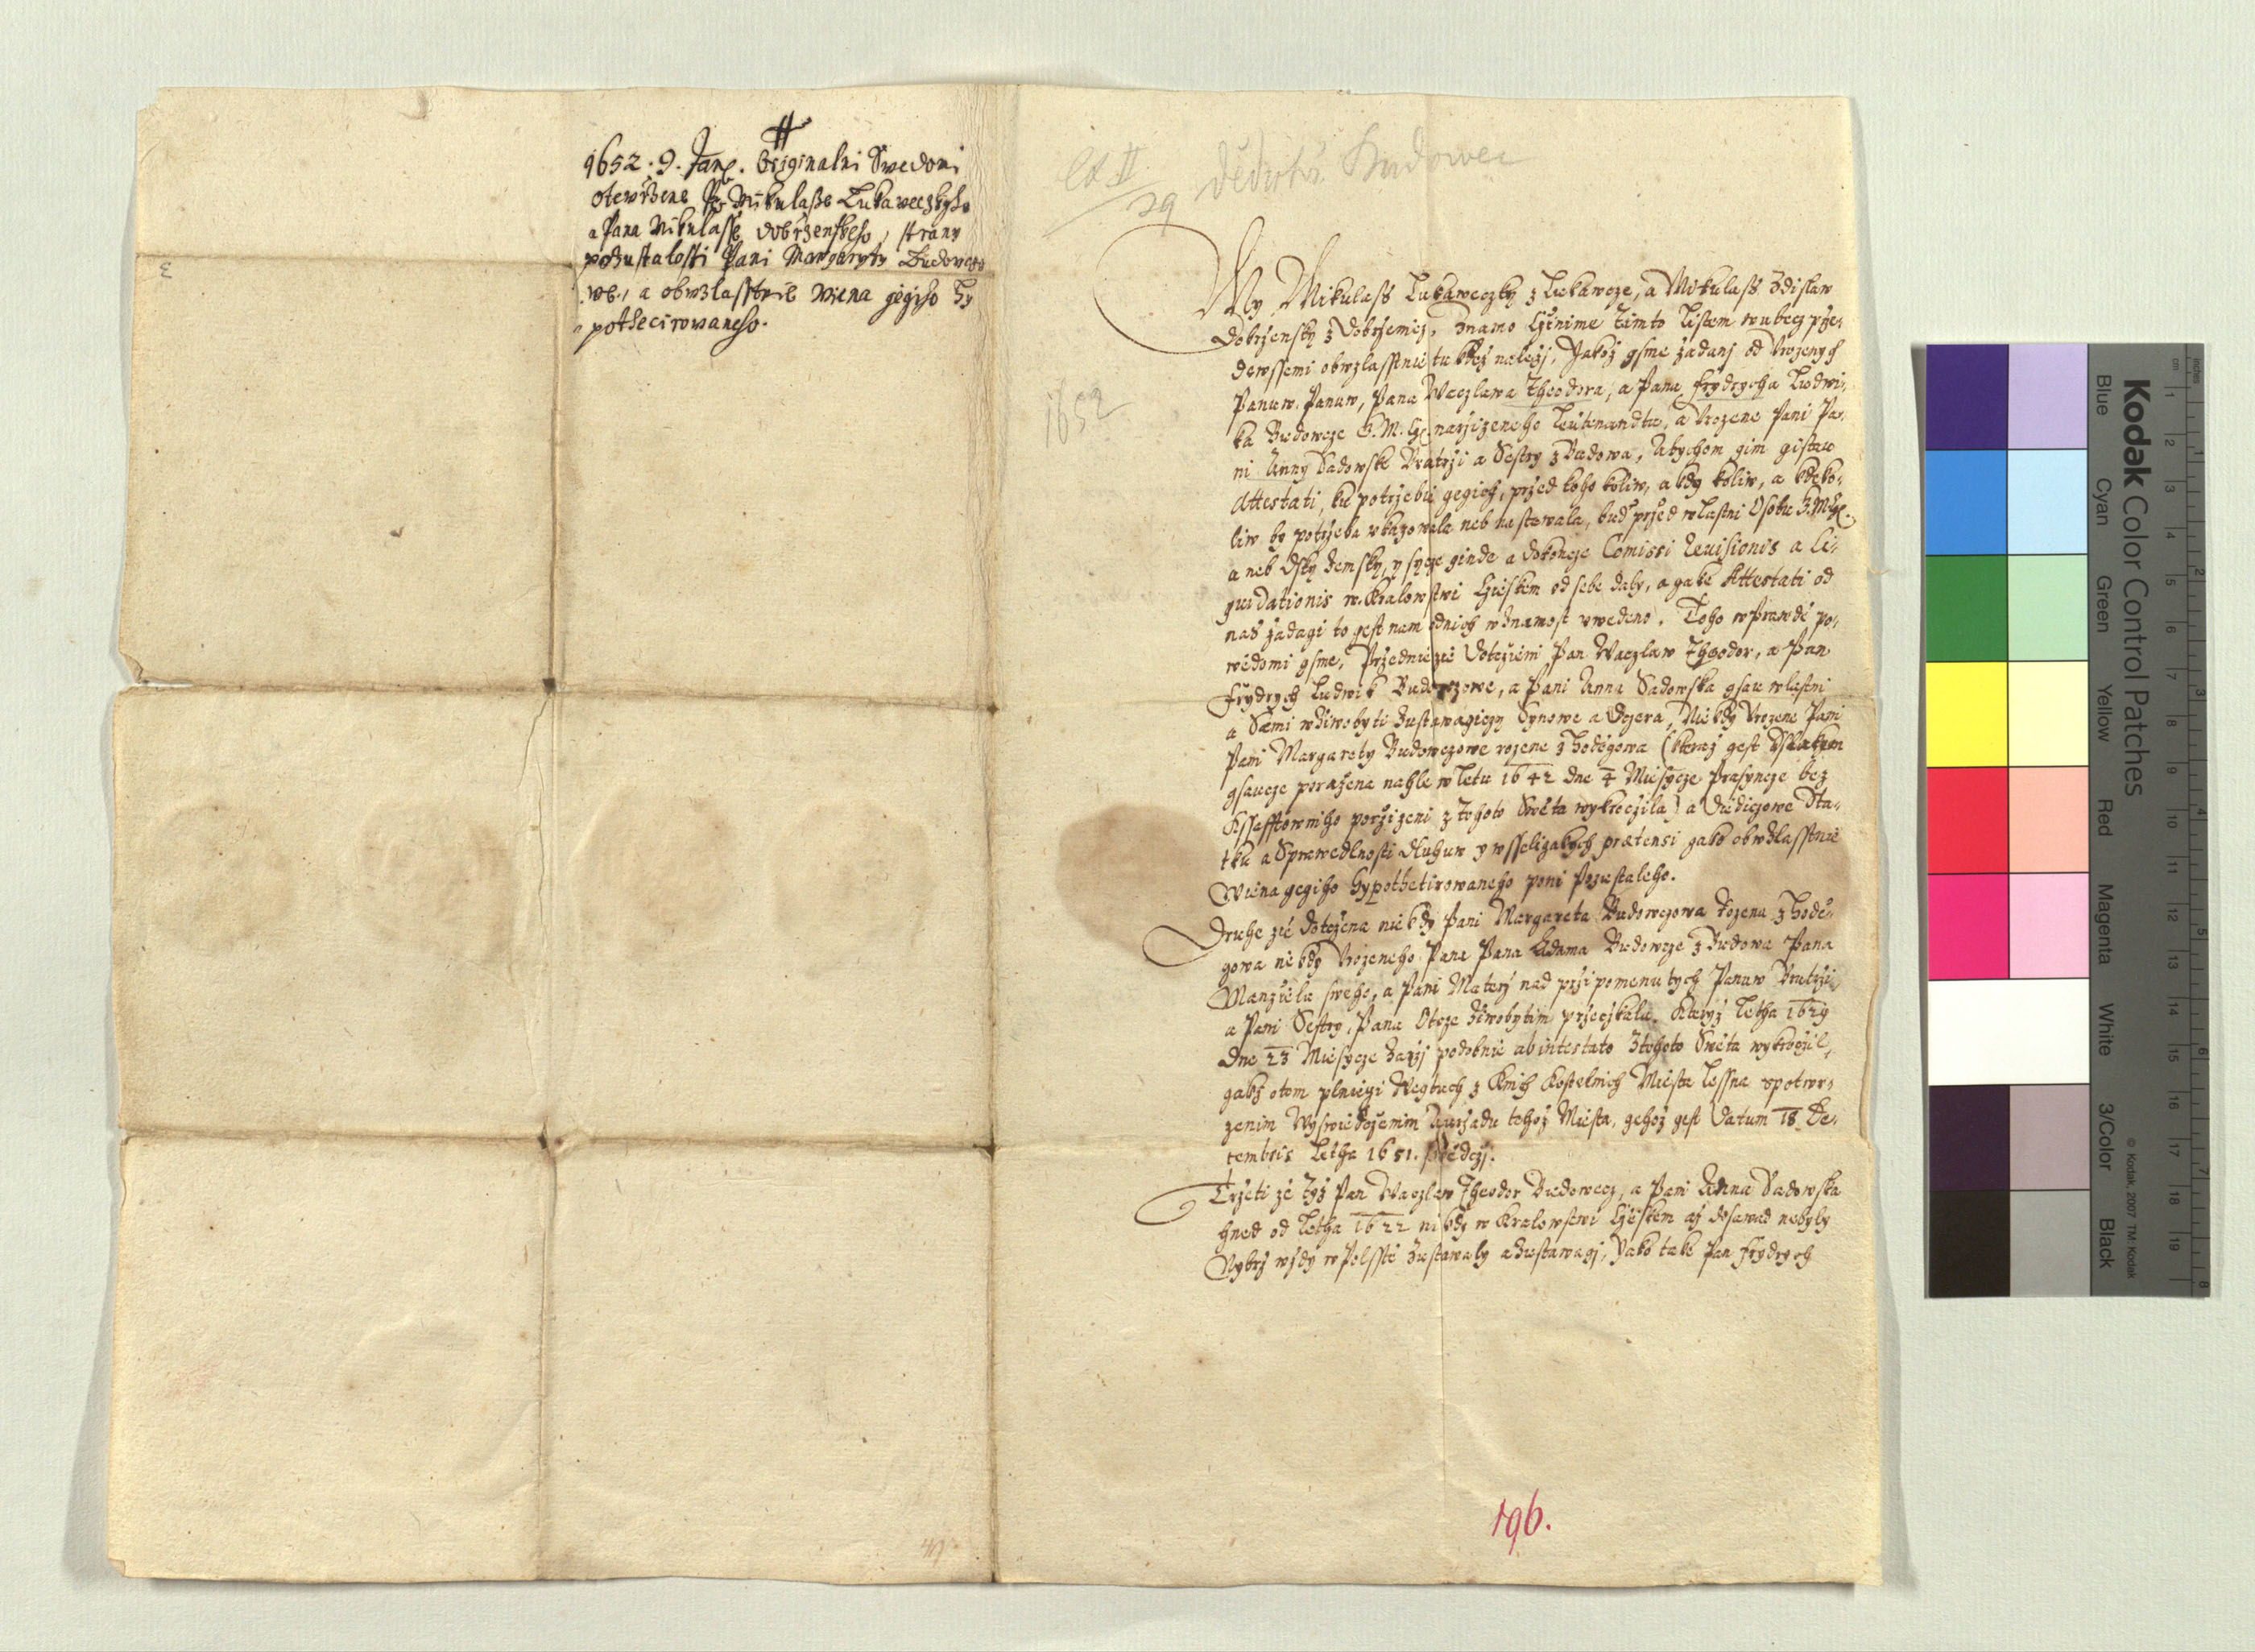 #
1652. 9. Jan. Originalni Swedomi
otewržene P. Mikulasse Lukaweczkyho
a Pana Mikulasse dobrzenskeho, strany
pozustalosti Pani Margarety Budowczo
we, a obwzlasstnie Wiena gegiho hy
pothecirowaneho.
3
dědictví Budowec
29
1652
My Mikulass Lukaweczky z Lukawcze, a Mikulass Zdislaw
Dobrzensky z Dobrzenicz, Znamo Czinime timto listem wubecz prže
dewssemi obwzlasstnie tu kdež naležj, Yakož gsme žadanj od Urozenych
Panuw Panuw, Pana Waczlawa Theodora, a Pana Frydrycha Ludwi-
ka Budowcze G. M. Cz. narzizeneho Leutenandta, a Urozene Pani Pa-
ni Anny Sadowske Bratrži a Sestry z Budowa, Abychom gim gistau
Attestati, ku potržebie gegich, pržed koho koliw, a kdy koliw, a kdeko-
liw by potržeba ukazowala neb nastawala, bud pržed wlastni Osobu G. M. Cz.
a neb Dsky Zemsky, y sycze ginde a dokoncze Comissi Revisionis a Li-
quidationis w Kralowstwi Czieskem od sebe daly, a gake Attestati od
nas žadagi to gest nam odnich w Znamost uwedeno. Toho wprawdě po-
wědomi gsme, Pržedniezie Dotcziem Pan Waczlaw Theodor, a Pan
Frydrych Ludwik Budowczowe, a Pani Anna Sadowska gsau wlastni
a Sami wžiwobyti Zustawagiczy Synowe a Dczera, Niekdy Urozene Pani
Pani Margarety Budowczowe rozene z Hoděgowa (kteraž gest Sslakem
gsaucze poražena nahle w letu 1642 dne 4 Miesycze Prasyncze bez
Kssafftowniho poržizeni z tohoto Swěta wykroczila) a Dědiczowe Sta-
tku a Sprawedlnosti Dluhuw y wsselijakych praetensi gako obwzlasstnie
Wiena gegiho Hypothetirowaneho poni Pozustaleho.
Druhe zie Dotczena niekdy Pani Margareta Budowczowa rozena z Hodě-
gowa někdy Urozeneho Pana Pana Adama Budowcze z Budowa Pana
Manžiela sweho, a Pani Materž nad pržipomenutych Panuw Bratrži
a Pani Sestry, Pana Otcze Ziwobytim prżeczkala. Kteryž Letha 1629
dne 23 Miesycze Zarži podobnie ab intestato Ztohoto Swěta wykroczil,
gakž otom plniegi Wegtach z Knih Kostelnich Miesta Lessna spotwr-
zenim Wyswiedczenim Auržadu tehož Miesta, gehož gest Datum 18 De-
cembris Letha 1651. swědczj.
Tržeti zě tyž Pan Waczlaw Theodor Budowecz, a Pani Anna Sadowska
hned od Letha 1622 nikdy w Kralowstwi Czieskem až dosawad nebyly
Nybrž wždy w Polsstě Zustawaly a Zustawagj, Jako take Pan Frydrych
196.